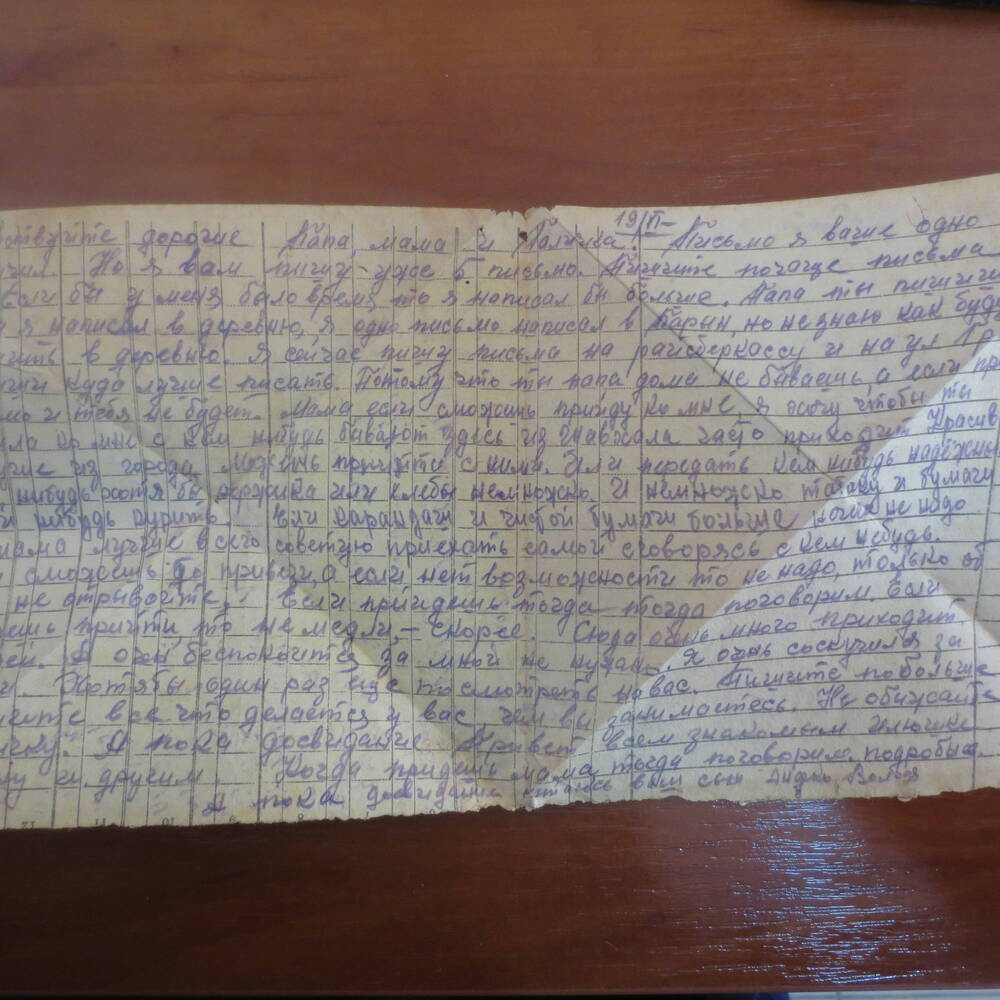 19/II-
ствуйте дорогие Папа, мама и Галичка! Письмо я ваше одно
чил. Но я вам пишу уже 5 письмо. Пишите почаще письма
Если бы у меня было время, то я написал бы больше. Папа ты пишиш
я написал в деревню, я одно письмо написал в Парын, но не знаю как буд
в деревню. Я сейчас пишу письма на райсберкассу и на ул
куда лучше писать. Потому что ты папа дома не бываешь, а если
мо и тебя не будет. Мама если сможишь приеду ко мне, я хочу чтобы ты
ла ко мне с кем нибудь бывают здесь из часто приходит
из города. Можешь притти с ними. Или передать кем нибудь надёжны
нибудь хотя бы коржика или хлебы немножко. И немножко табаку и бумаги
нибудь курить. Или карандаш и чистой бумаги больше ничего не надо
мама лучше всего советую приехать самой сговорясь с кем небудь.
сможешь то привези, а если нет возможности то не надо, только от
не отрывайте. Если придешь тогда тогда поговорим. Если
ешь притти, то не медли, - скорее. Сюда очень много приходит
ей. А очи беспокоится за мной не нужно. Я очень соскучился за
Хотябы один раз еще посмотреть на вас. Пишите побольше
шите все что делается у вас, чем вы занимаетесь. Не обижайте
ичку. А пока досвидание. Привет всем знакомым
и другим. Когда придешь мама, тогда поговорим подробно.
А пока досвидание остаюсь ваш сын Володя